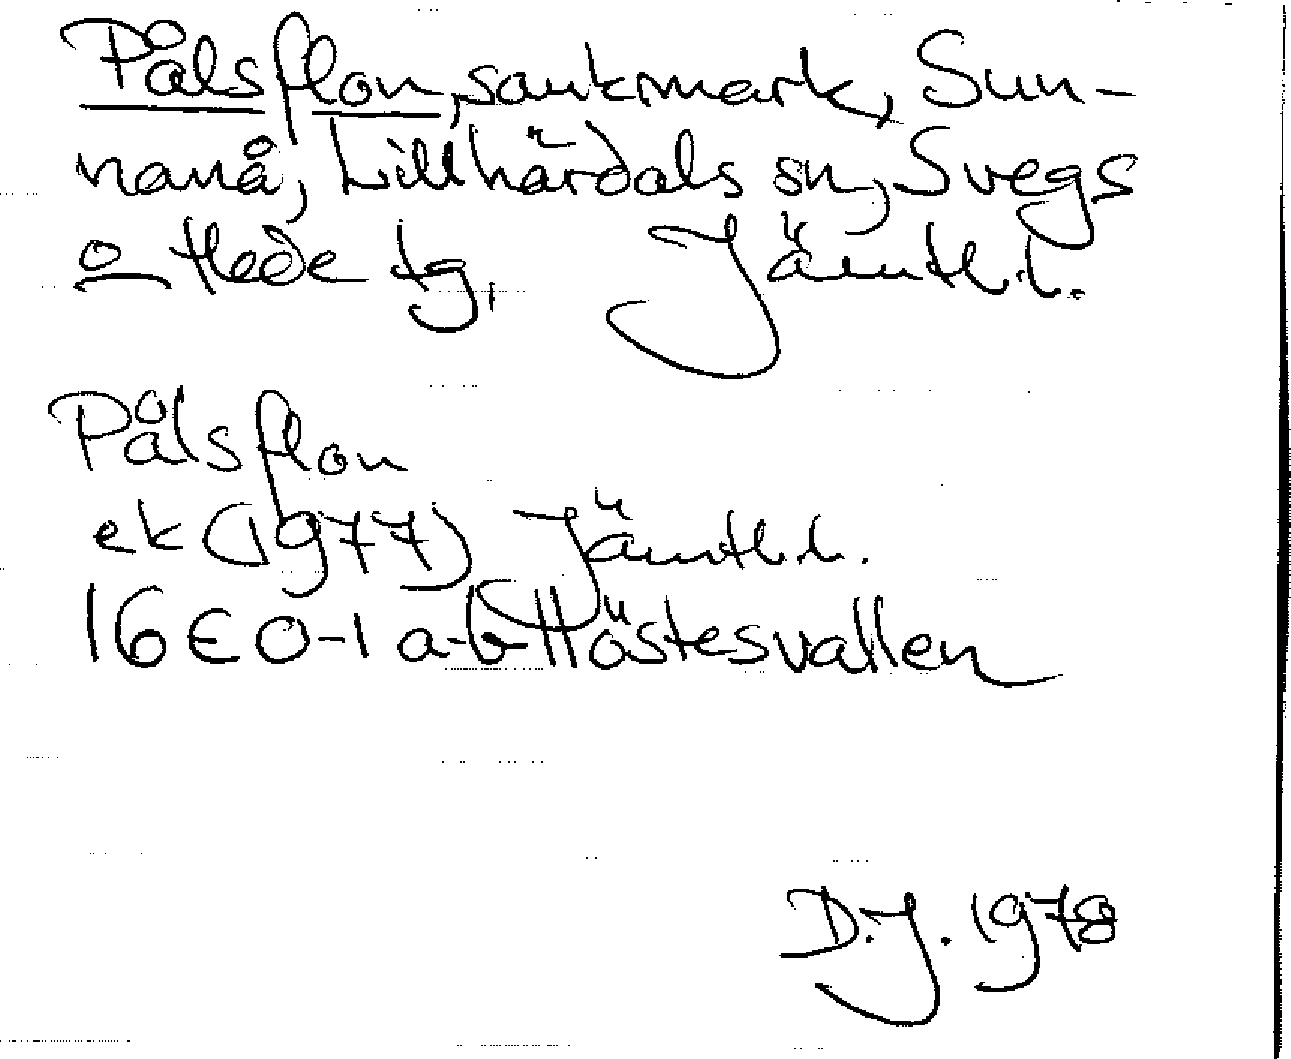 Pålsflon, sankmark, Sun-
nanå, Lillhärdals sn, Svegs
o Hede tg, Jämtl.l.
Pålsflon
ek (1977) Jämtl.l.
16E 0-1 a-b Höstesvallen
D.J. 1978